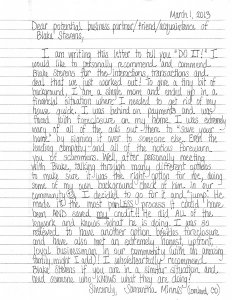 March 1, 2013
Dear potential business partner/friend/acquaintance of
Blake Stevens,
I am writing this letter to tell you "DO IT!" I
would like to personally recommend and commend
Blake Stevens for the interactions, transactions and
deal that we just worked out! To give a tiny bit of
background, I am a single mom and ended up in a
financial situation where I needed to get rid of my
house quick. I was behind on payments and was
faced with foreclosure on my home. I was extremely
wary of all of the ads out there to "save your
home" by signing it over to someone else. Even the
lending company and all of the notices
you of scammers. Well, after personally meeting
with Blake, talking through many different
to make sure it was the right option for me, doing
some of my own background check of him in our
community, I decided to go for it and jump! He
made it the most painless process it could have
been AND saved my credit!! He did ALL of the
legwork and knows what he is doing. I was so
relieved to have another option besides foreclosure
and have also met an extremely honest, upfront,
loyal businessman in our community (with an amazing
family might I add)! I wholeheartedly recommend
Blake Stevens if you are in a similar situation and
need someone who KNOWS what they are doing!
Sincerely, Samantha Minnis (Loveland, CO)